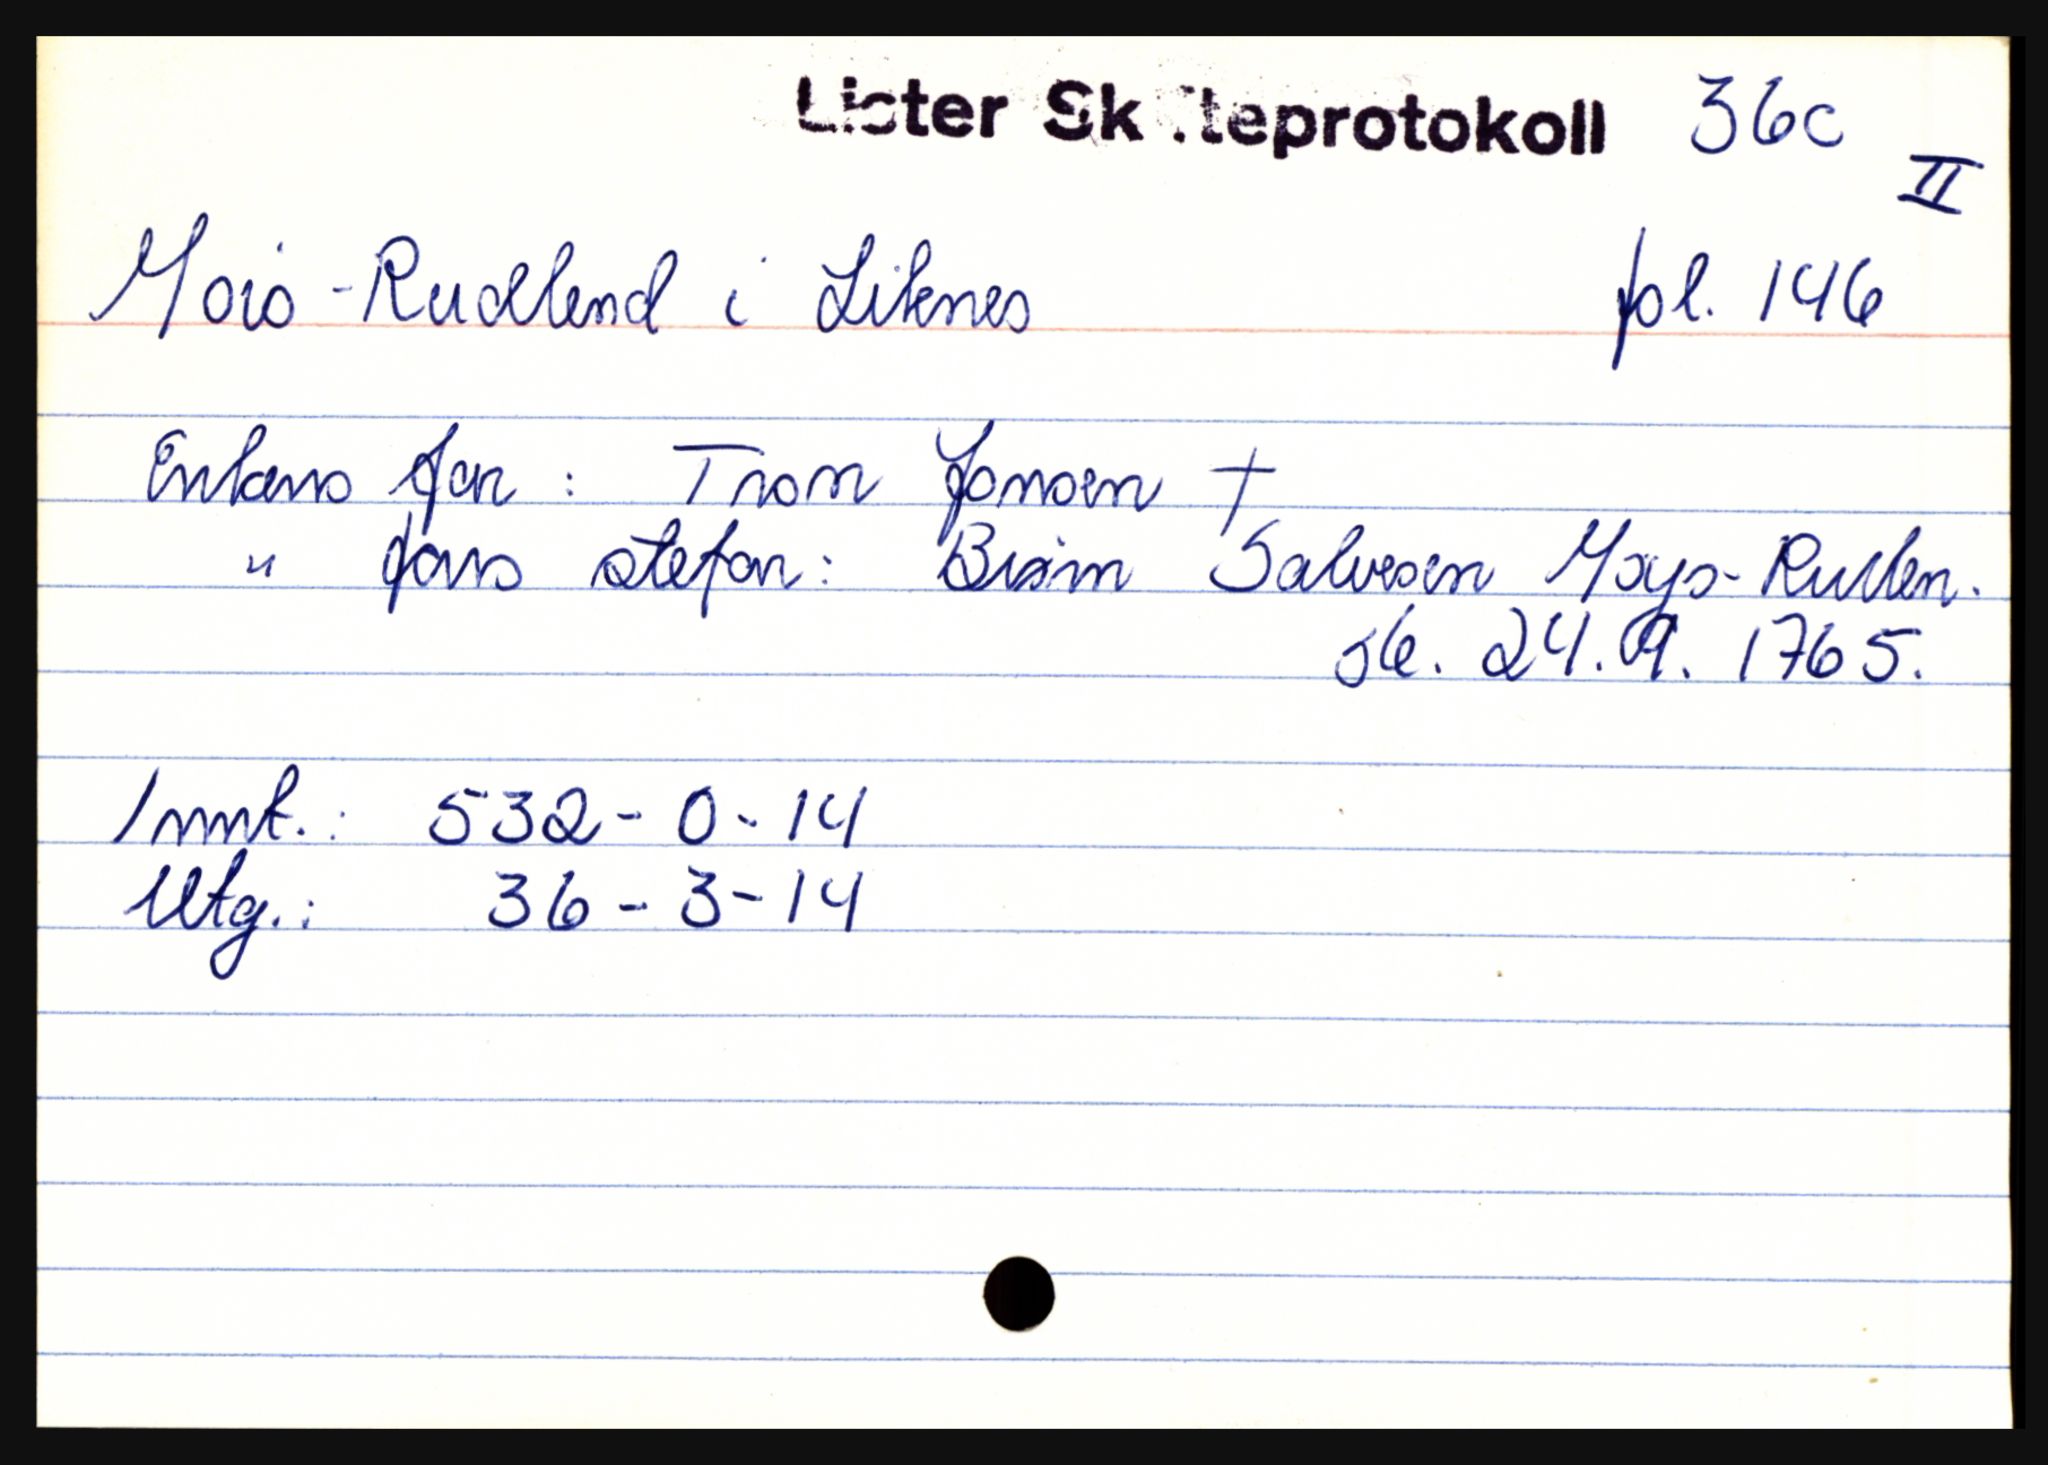 Lister Skifteprotokoll 36c
II
Mois-Rudlend i Liknes fol. 146
Enkens far: Tron Jonsen †
" fars stefar: Salvesen Moys-Rudlen.
sk. 24.9. 1765.
Innt.: 532-0-14
Utg.: 36-3-14